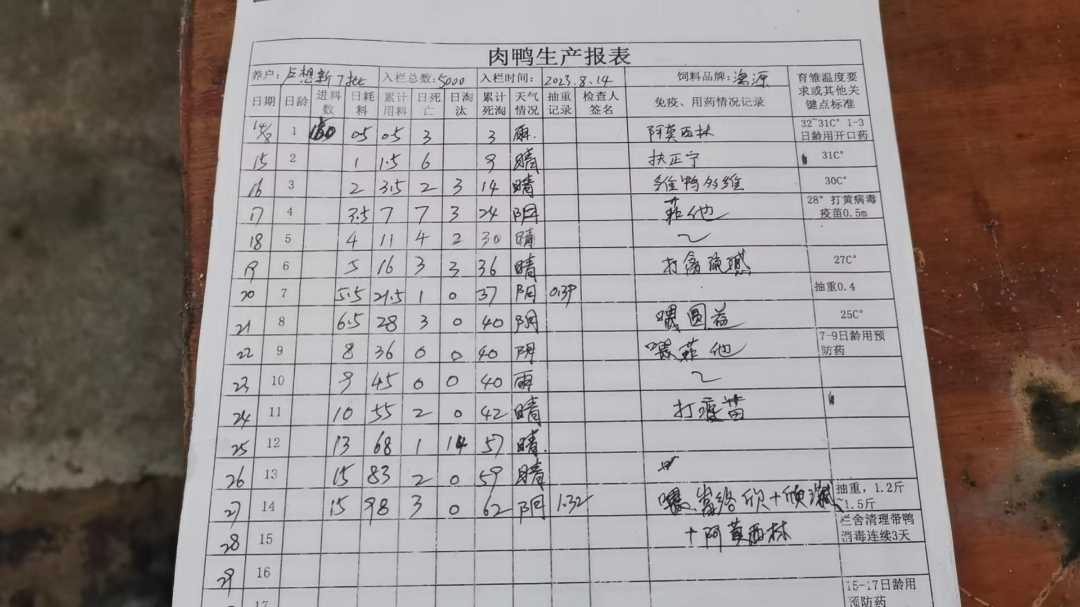 肉鸭生产报表
养户: 卢想新7批 入栏总数: 5000 入栏时间: 2023.8.14 饲料品牌: 育雏温度要求或其他关键点标准
日期 日龄 进料数 日耗料 累计用料 日死亡 日淘汰 累计死淘 天气情况 抽重记录 检查人签名 免疫、用药情况记录
14/8 1 0.5 0.5 3 3 雨. 阿莫西林 32~31C° 1-3日龄用开口药
15 2 1 1.5 6 9 晴 扶正宁 31C°
16 3 2 3.5 2 3 14 晴 雏鸭多维 30C°
17 4 3.5 7 7 3 24 阴 菲他 28° 打黄病毒疫苗0.5m
18 5 4 11 4 2 30 晴
19 6 5 16 3 3 36 晴 27C°
20 7 5.5 21.5 1 0 37 阴 0.39 抽重0.4
21 8 6.5 28 3 0 40 阴 喂圆益 25C°
22 9 8 36 0 0 40 阴 喂菲他 7-9日龄用预防药
23 10 9 45 0 0 40 雨
24 11 10 55 2 0 42 晴 打疫苗
25 12 13 68 1 14 57 晴.
26 13 15 83 2 0 59 晴
27 14 15 98 3 0 62 阴 1.32 抽重, 1.2斤 1.5斤
28 15 +阿莫西林 栏舍清理带鸭消毒连续3天
29 16
17 15-17日龄用预防药